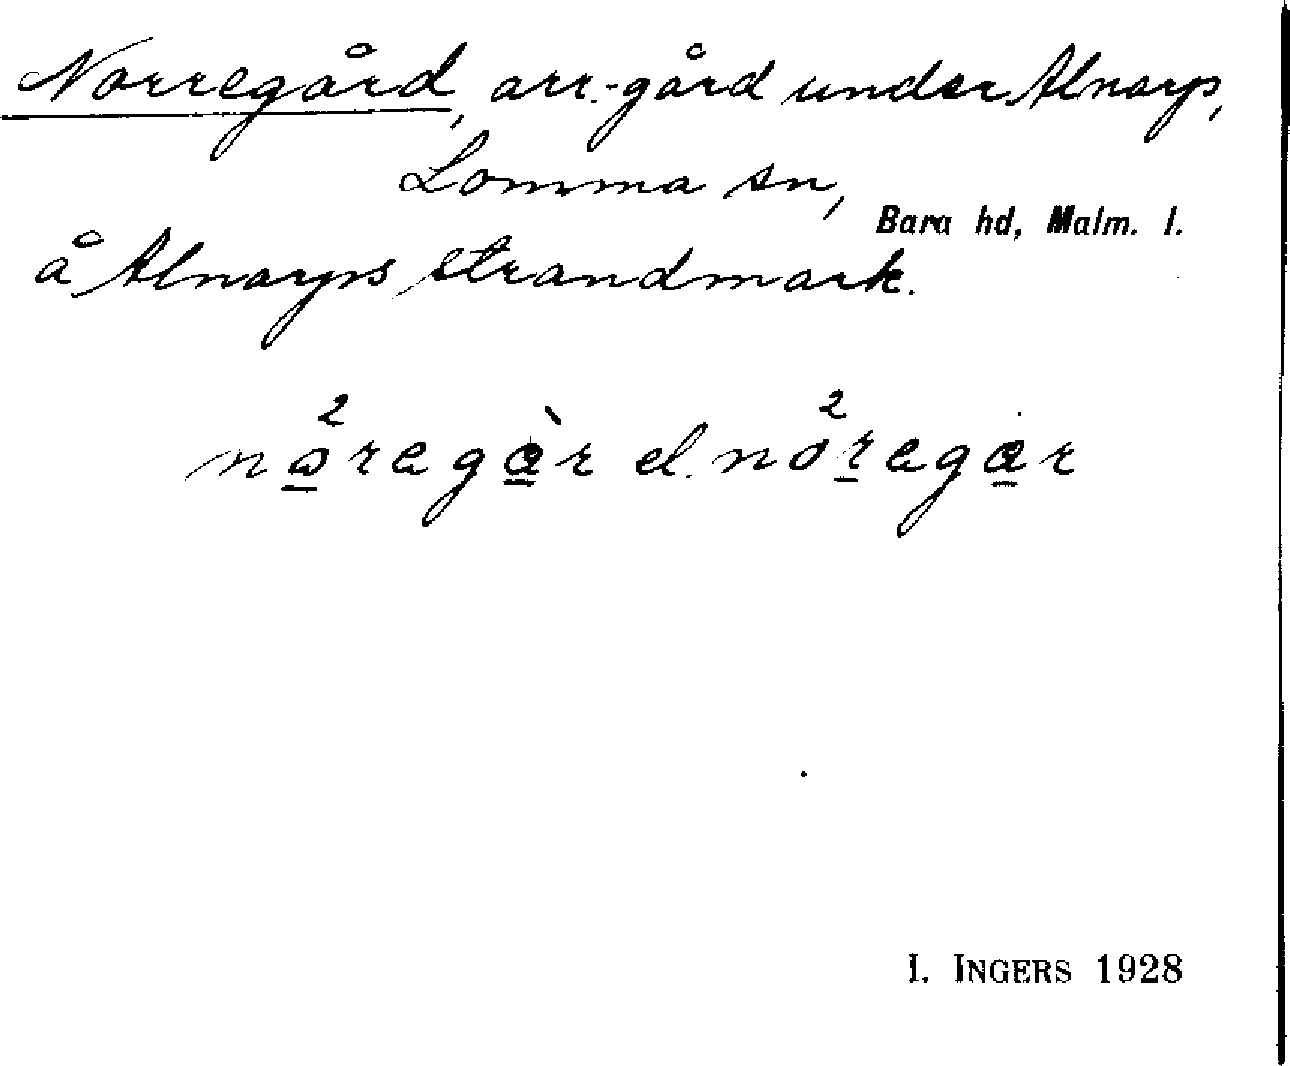 Norregård, arr.-gård under Alnarp,
Lomma sn,
Bara hd, Malm. l.
å Alnarps strandmark.
el.
I. INGERS 1928